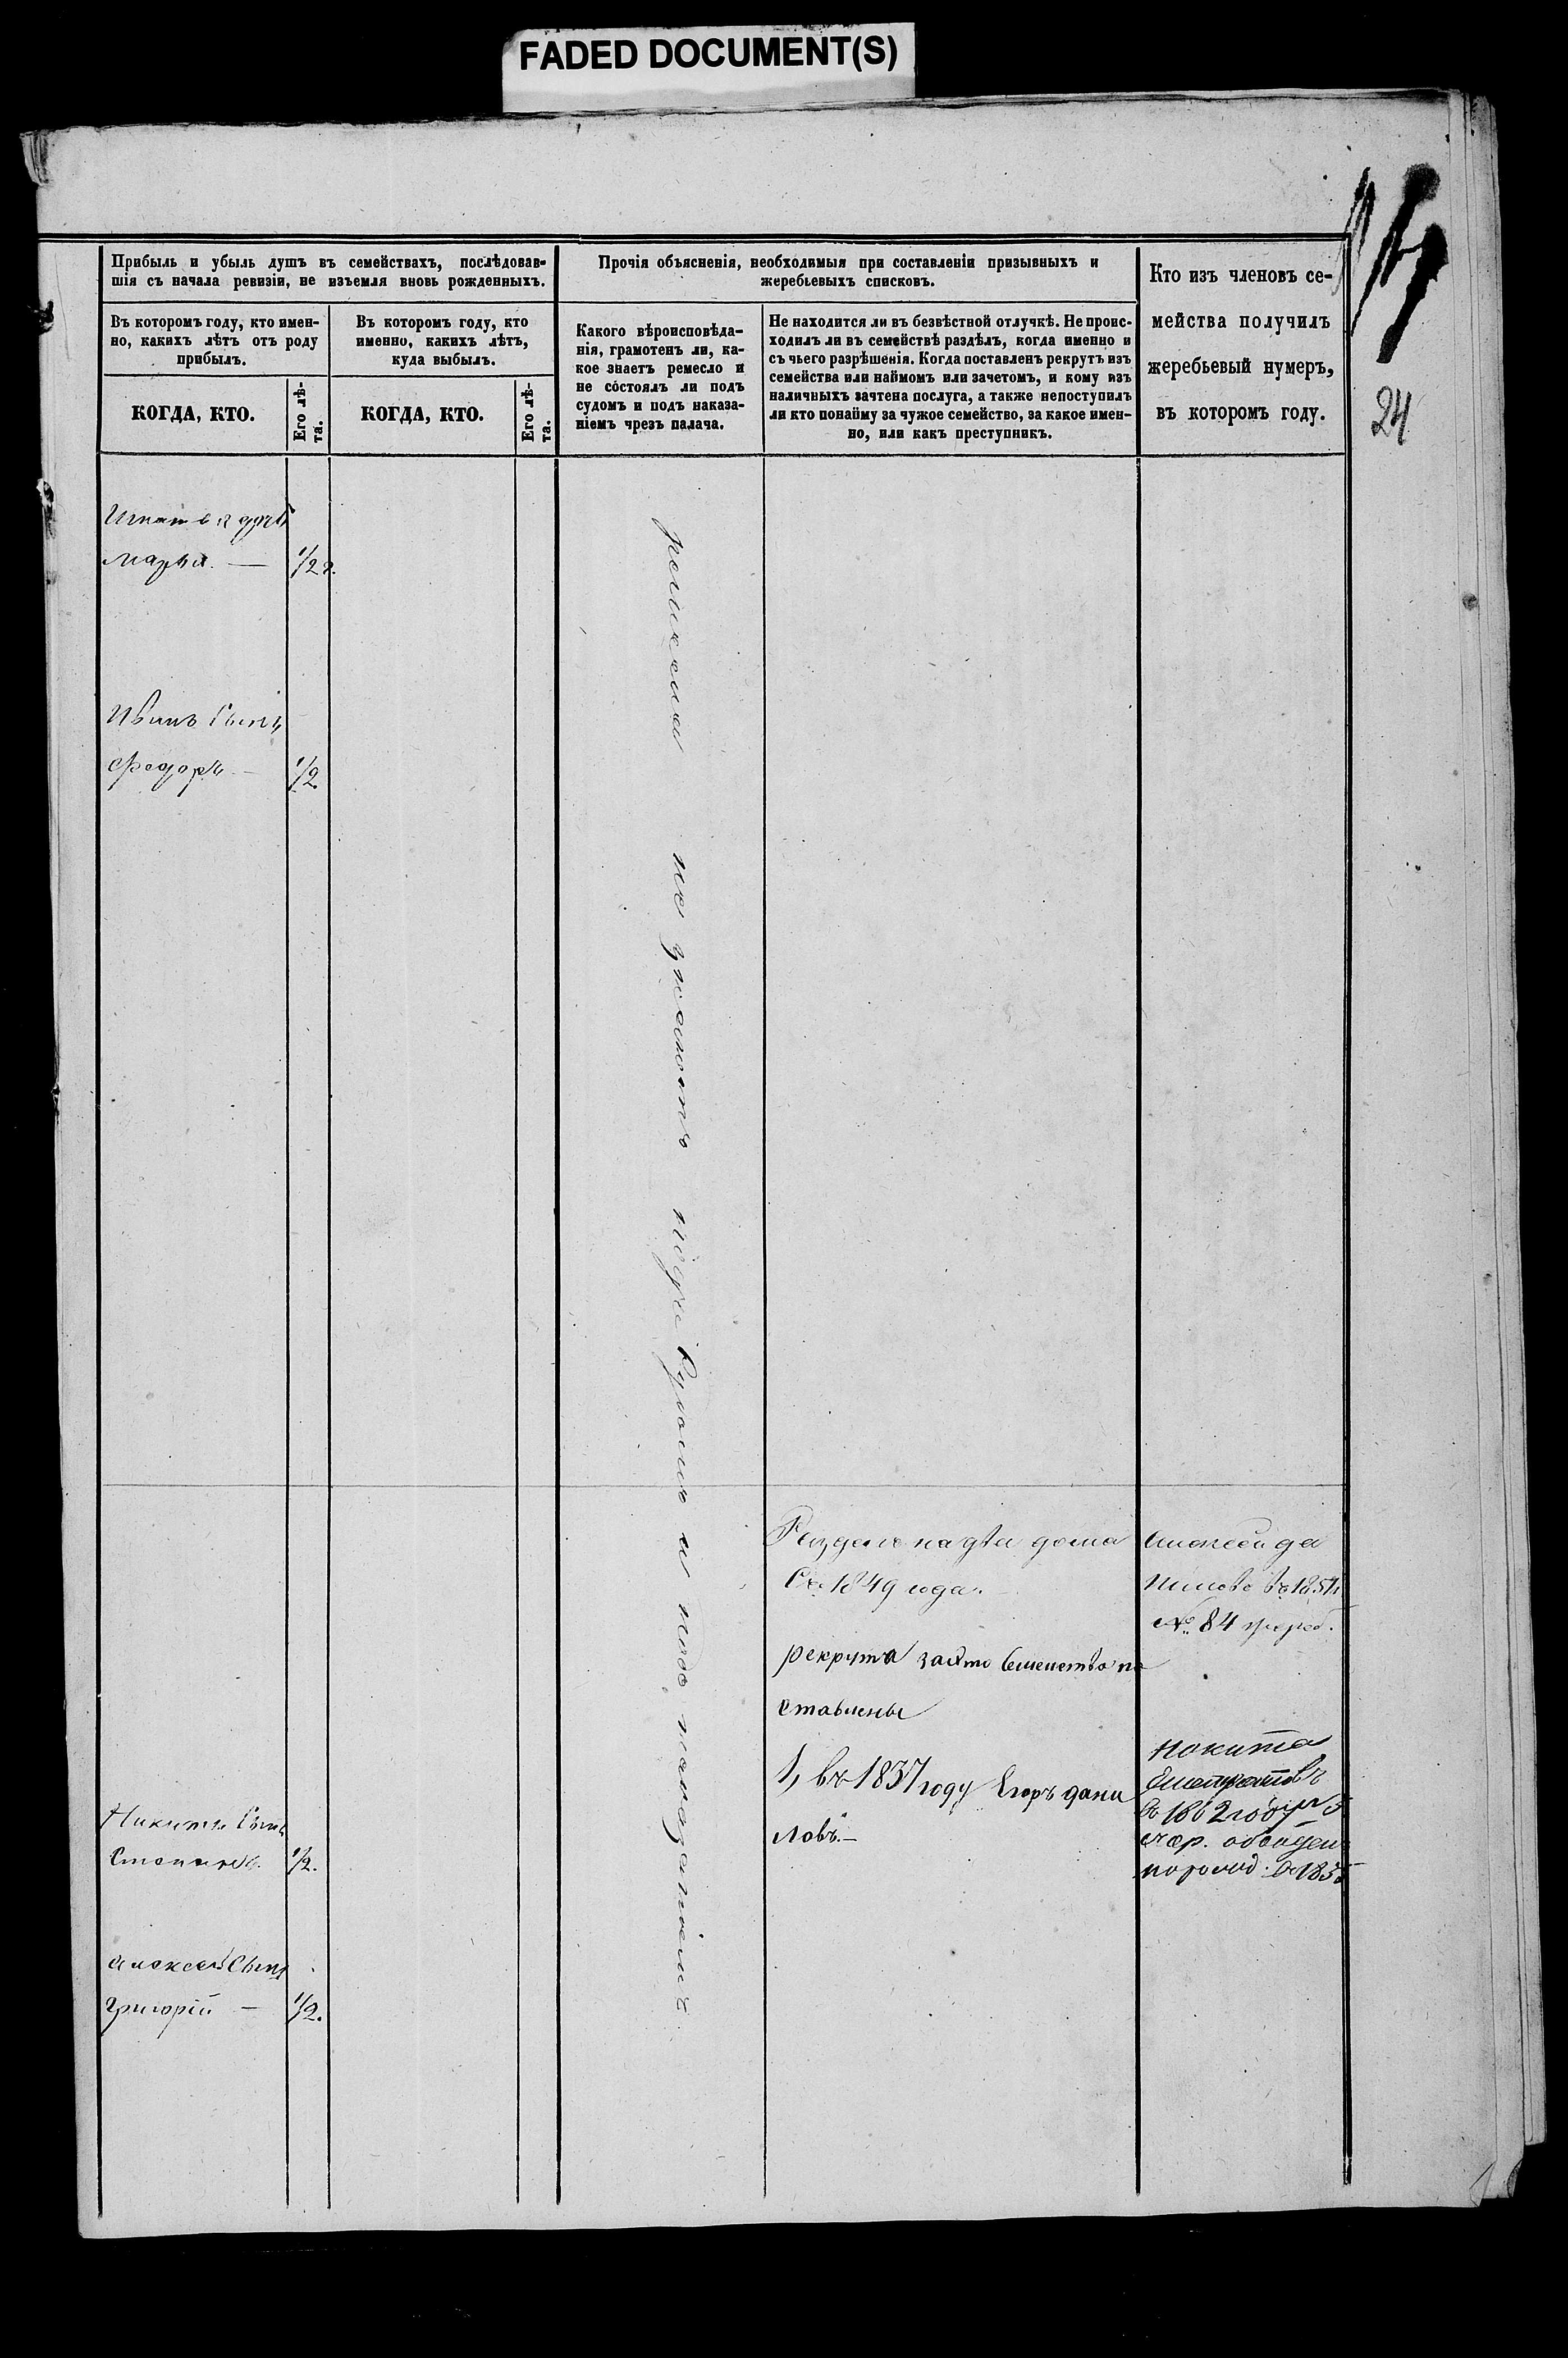 FADED DOCUMENT(S)
24
Прибыль и убыль душъ въ семействахъ, послѣдовав-
шія съ начала ревизіи, не изъемля вновь рожденныхъ.
Въ которомъ году, кто имен-
но, какихъ лѣтъ отъ роду
прибылъ.
КОГДА, КТО.
Его лѣ-
та.
Въ которомъ году, кто
именно, какихъ лѣтъ,
куда выбылъ.
КОГДА, КТО.
Его лѣ-
та.
Прочія объясненія, необходимыя при составленіи призывныхъ и
жеребьевыхъ списковъ.
Какого вѣроисповѣда-
нія, грамотенъ ли, ка-
кое знаетъ ремесло и
не состоялъ ли подъ
судомъ и подъ наказа-
ніемъ чрезъ палача.
Не находится ли въ безвѣстной отлучкѣ. Не проис-
ходилъ ли въ семействѣ раздѣлъ, когда именно и
съ чьего разрѣшенія. Когда поставленъ рекрутъ изъ
семейства или наймомъ или зачетомъ, и кому изъ
наличныхъ зачтена послуга, а также непоступилъ
ли кто понайму за чужое семейство, за какое имен-
но, или какъ преступникъ.
Кто изъ членовъ се-
мейства получилъ
жеребьевый нумеръ,
въ которомъ году.
Марья. — 1/2
Иванъ Сынъ
Федоръ — 1/2
Никиты Сынъ
Степанъ. 1/2.
Алексѣя Сынъ
Григорій — 1/2.
и подъ наказаніемъ
Разделе на два дома
Съ 1849 года.
рекрута за это Семейство по
ставлены
1, въ 1837 году Егоръ дани
ловъ.—
Алексей да
ниловъ въ 185
№ 84 жереб.
Никита
въ 1862 году № 5